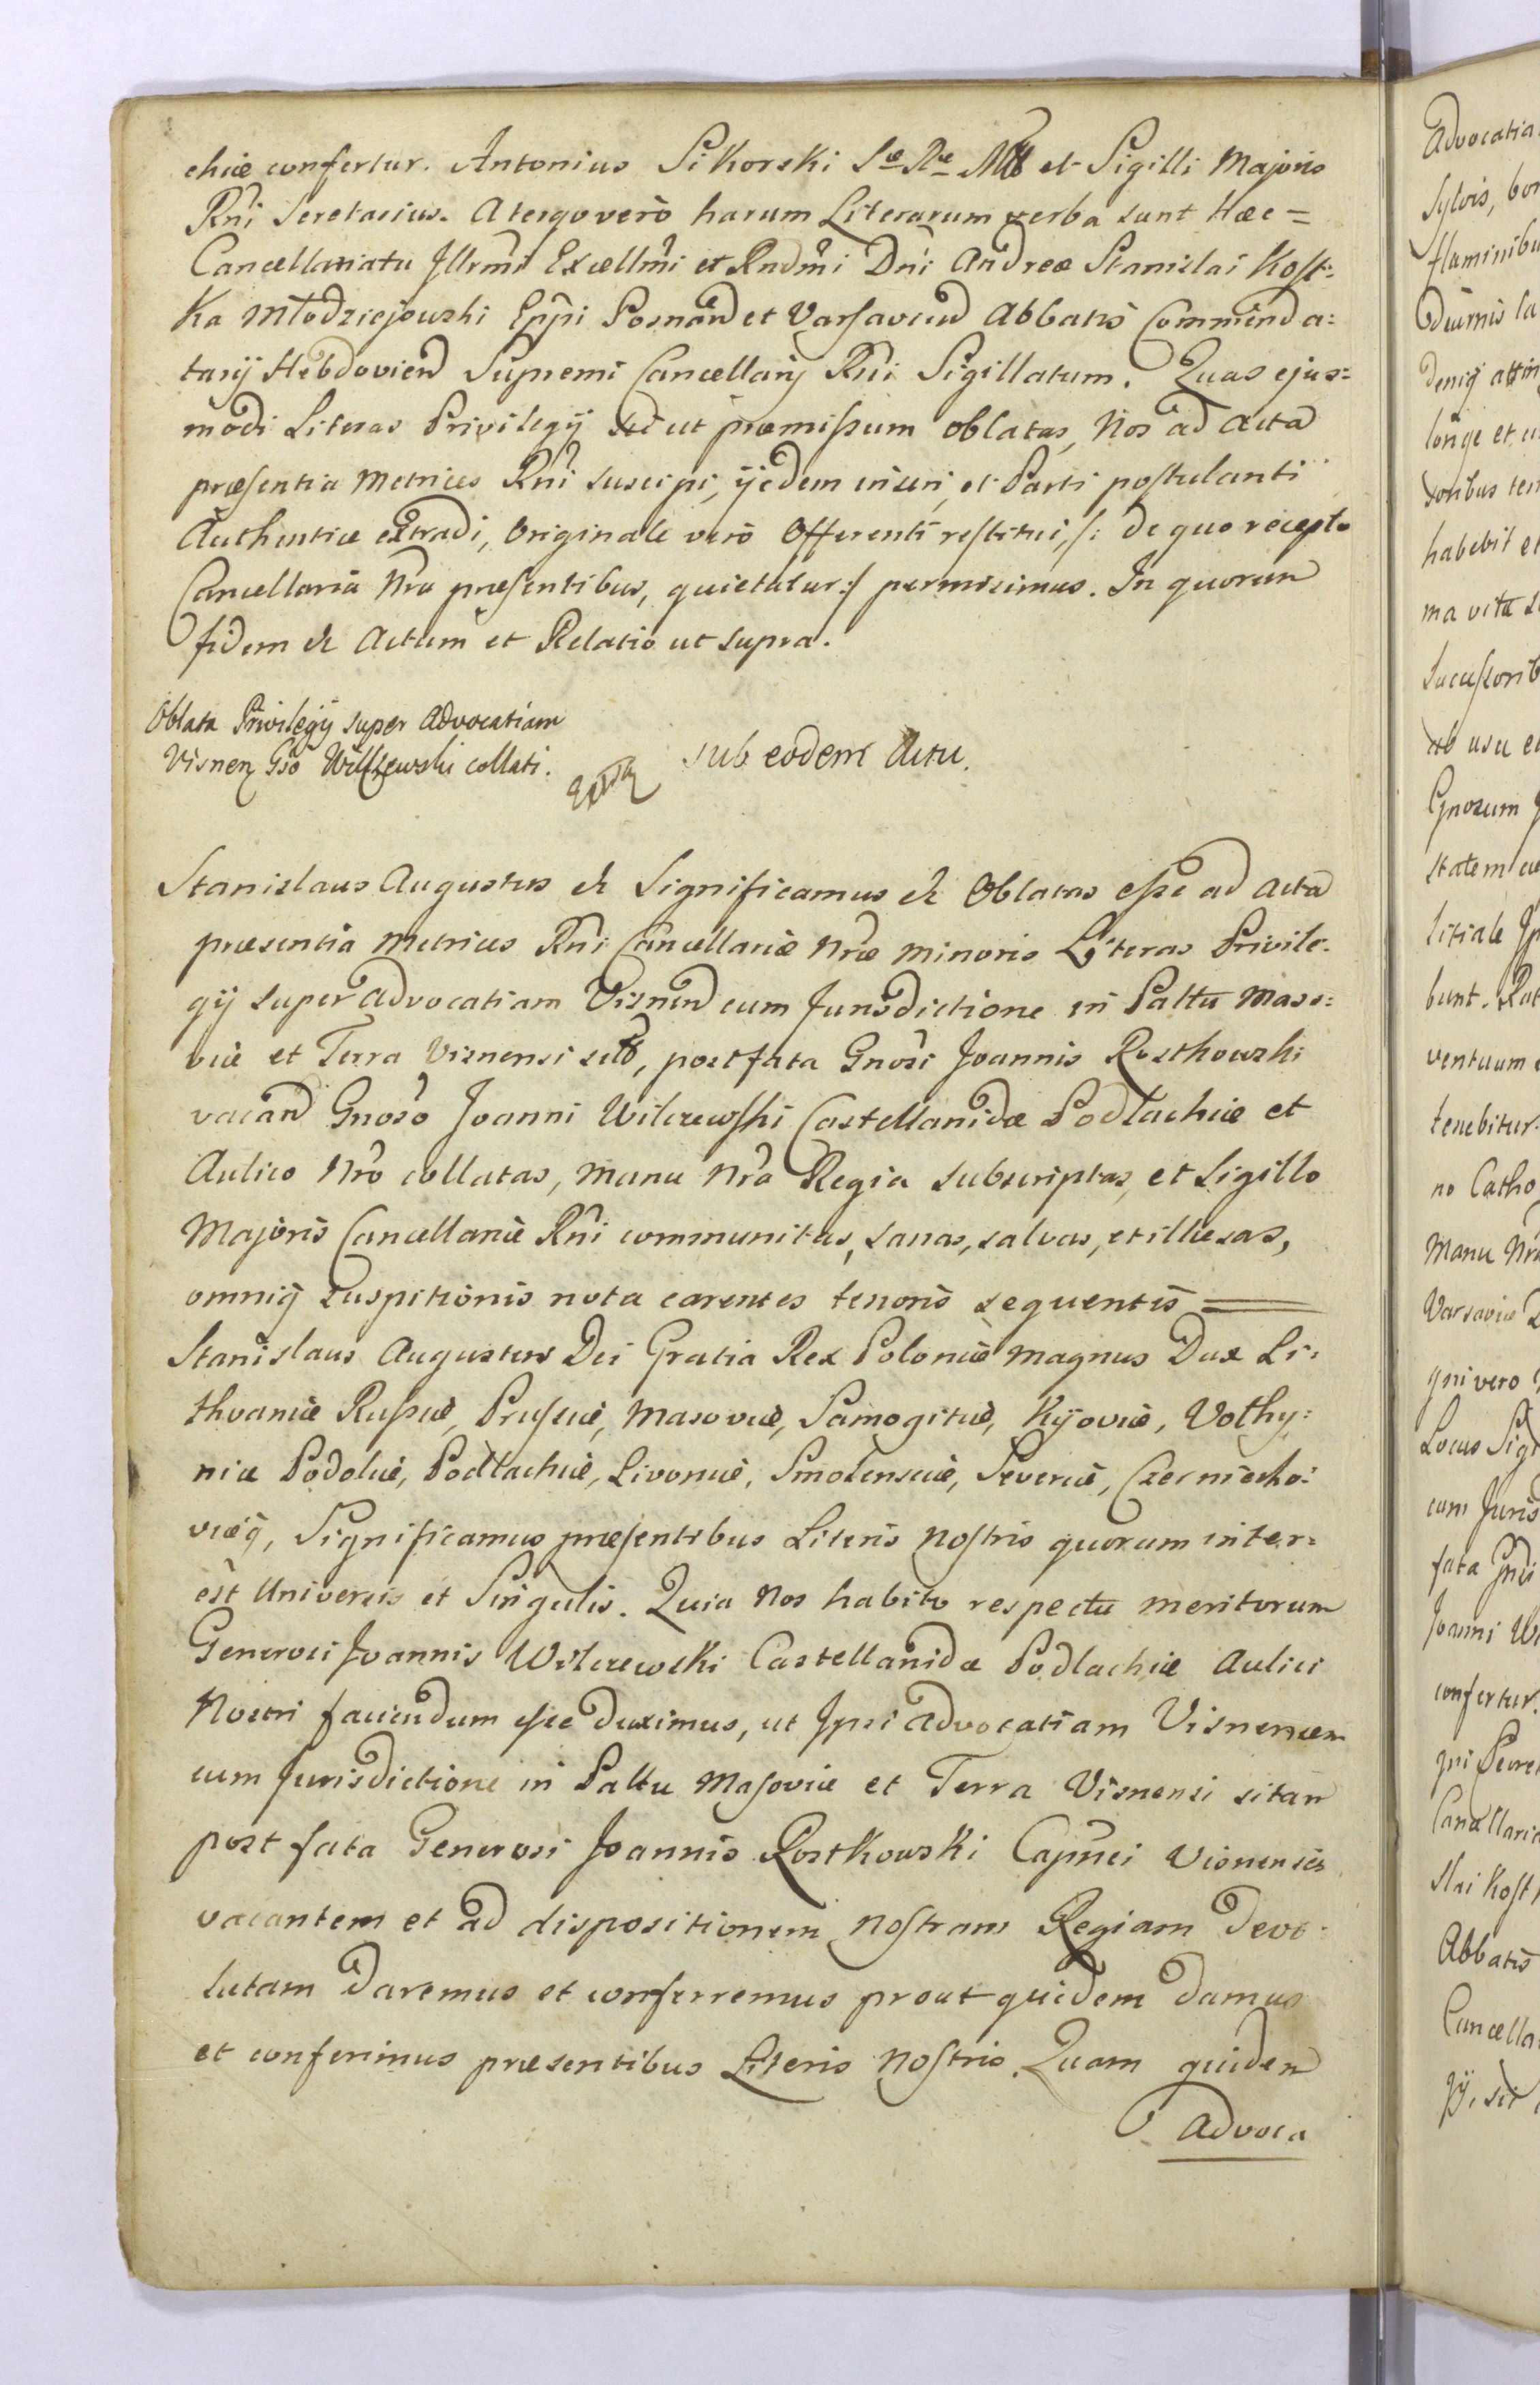 chiæ confertur. Antonius Sikorski Sæ Ræ Mtt et Sigilli Majoris
Rñi Seretarius. A tergo verò harum Literarum verba sunt Hæc =
Cancellariatu Jllrmi Excellmi et Rndmi Dni Andreæ Stanislai Kost=
ka Młodziejowski Eppi Posnan et Varsavien Abbatis Commenda=
tarij Hebdovien Supremi Cancellarij Rñi Sigillatum. Quas ejus=
modi Literas Privilegij sic ut præmissum oblatas, Nos ad Acta
præsentia Metrices Rñi suscipi, ijsdem inseri, et Parti postulanti
Authentice extradi, Originale verò Offerenti restitui, /: de quo recepto
Cancellaria Nra præsentibus, quietatur :/ permisimus. In quorum
fidem &c Actum et Relatio ut supra.
Oblata Privilegij super Advocatiam
Visnen Gso Wilczewski collati.
sub eodem Actu.
Stanislaus Augustus &c Significamus &c Oblatas esse ad Acta
præsentia Metrices Rñi Cancellariæ Nræ Minoris Literas Privile=
gij super Advocatiam Visnen cum Jurisdictione in Pallu Maso=
viæ et Terra Visnensi sit, post fata Gnosi Joannis Rostkowski
vacan Gnoso Joanni Wilczewski Castellanidæ Podlachiæ et
Aulico Nro collatas, Manu Nra Regia subscriptas, et Sigillo
Majoris Cancellariæ Rñi communitas, sanas, salvas, et illæsas,
omniq suspitionis nota carentes tenoris sequentis =
Stanislaus Augustus Dei Gratia Rex Poloniæ Magnus Dux Li=
thvaniæ Russiæ, Prussiæ, Masoviæ, Samogitiæ, Kijoviæ, Volhy=
niæ Podoliæ, Podlachiæ, Livoniæ, Smolensciæ, Severiæ, Czerniecho=
viæq, Significamus præsentibus Literis nostris quorum inter=
est Universis et Singulis. Quia Nos habito respectu meritorum
Generosi Joannis Wilczewski Castellanidæ Podlachiæ Aulici
Nostri faciendum esse duximus, ut Jpsi Advocatiam Visnensem
cum Jurisdictione in Pallu Masoviæ et Terra Visnensi sitam
post fata Generosi Joannis Rostkowski Capnei Visnensis
vacantem et ad dispositionem nostram Regiam devo=
lutam daremus et conferremus prout quidem damus
et conferimus præsentibus Literis Nostris. Quam quidem
Advoca
Advocatia
Sylvis, bor
fluminibu
diurnis la
deniq attin
longe et
habebit et
ma vita
ab usu
litiale Jp
bunt.
ventuum
tenebitur.
no Catho
Manu Nra
Varsaviæ
gni vero
Locus Sigi
cum Juris
fata Gnosi
Joanni Wi
confertur.
gni Secret
Cancellaria
slai Kost
Abbatis
Cancella